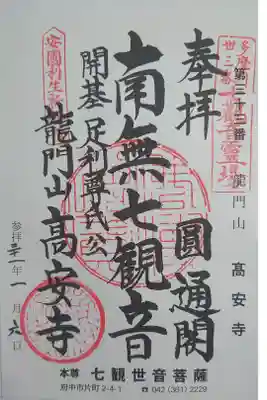 多摩
卅三番
観音霊場
第三十三番 龍門山 高安寺
奉拝
圓通閣
南無七観音
開基 足利尊氏公
安國利生
龍門山 高安寺
参拝 三一年 一月 六日
本尊 七観世音菩薩
府中市片町2-4-1 ☎ 042 (361) 2229